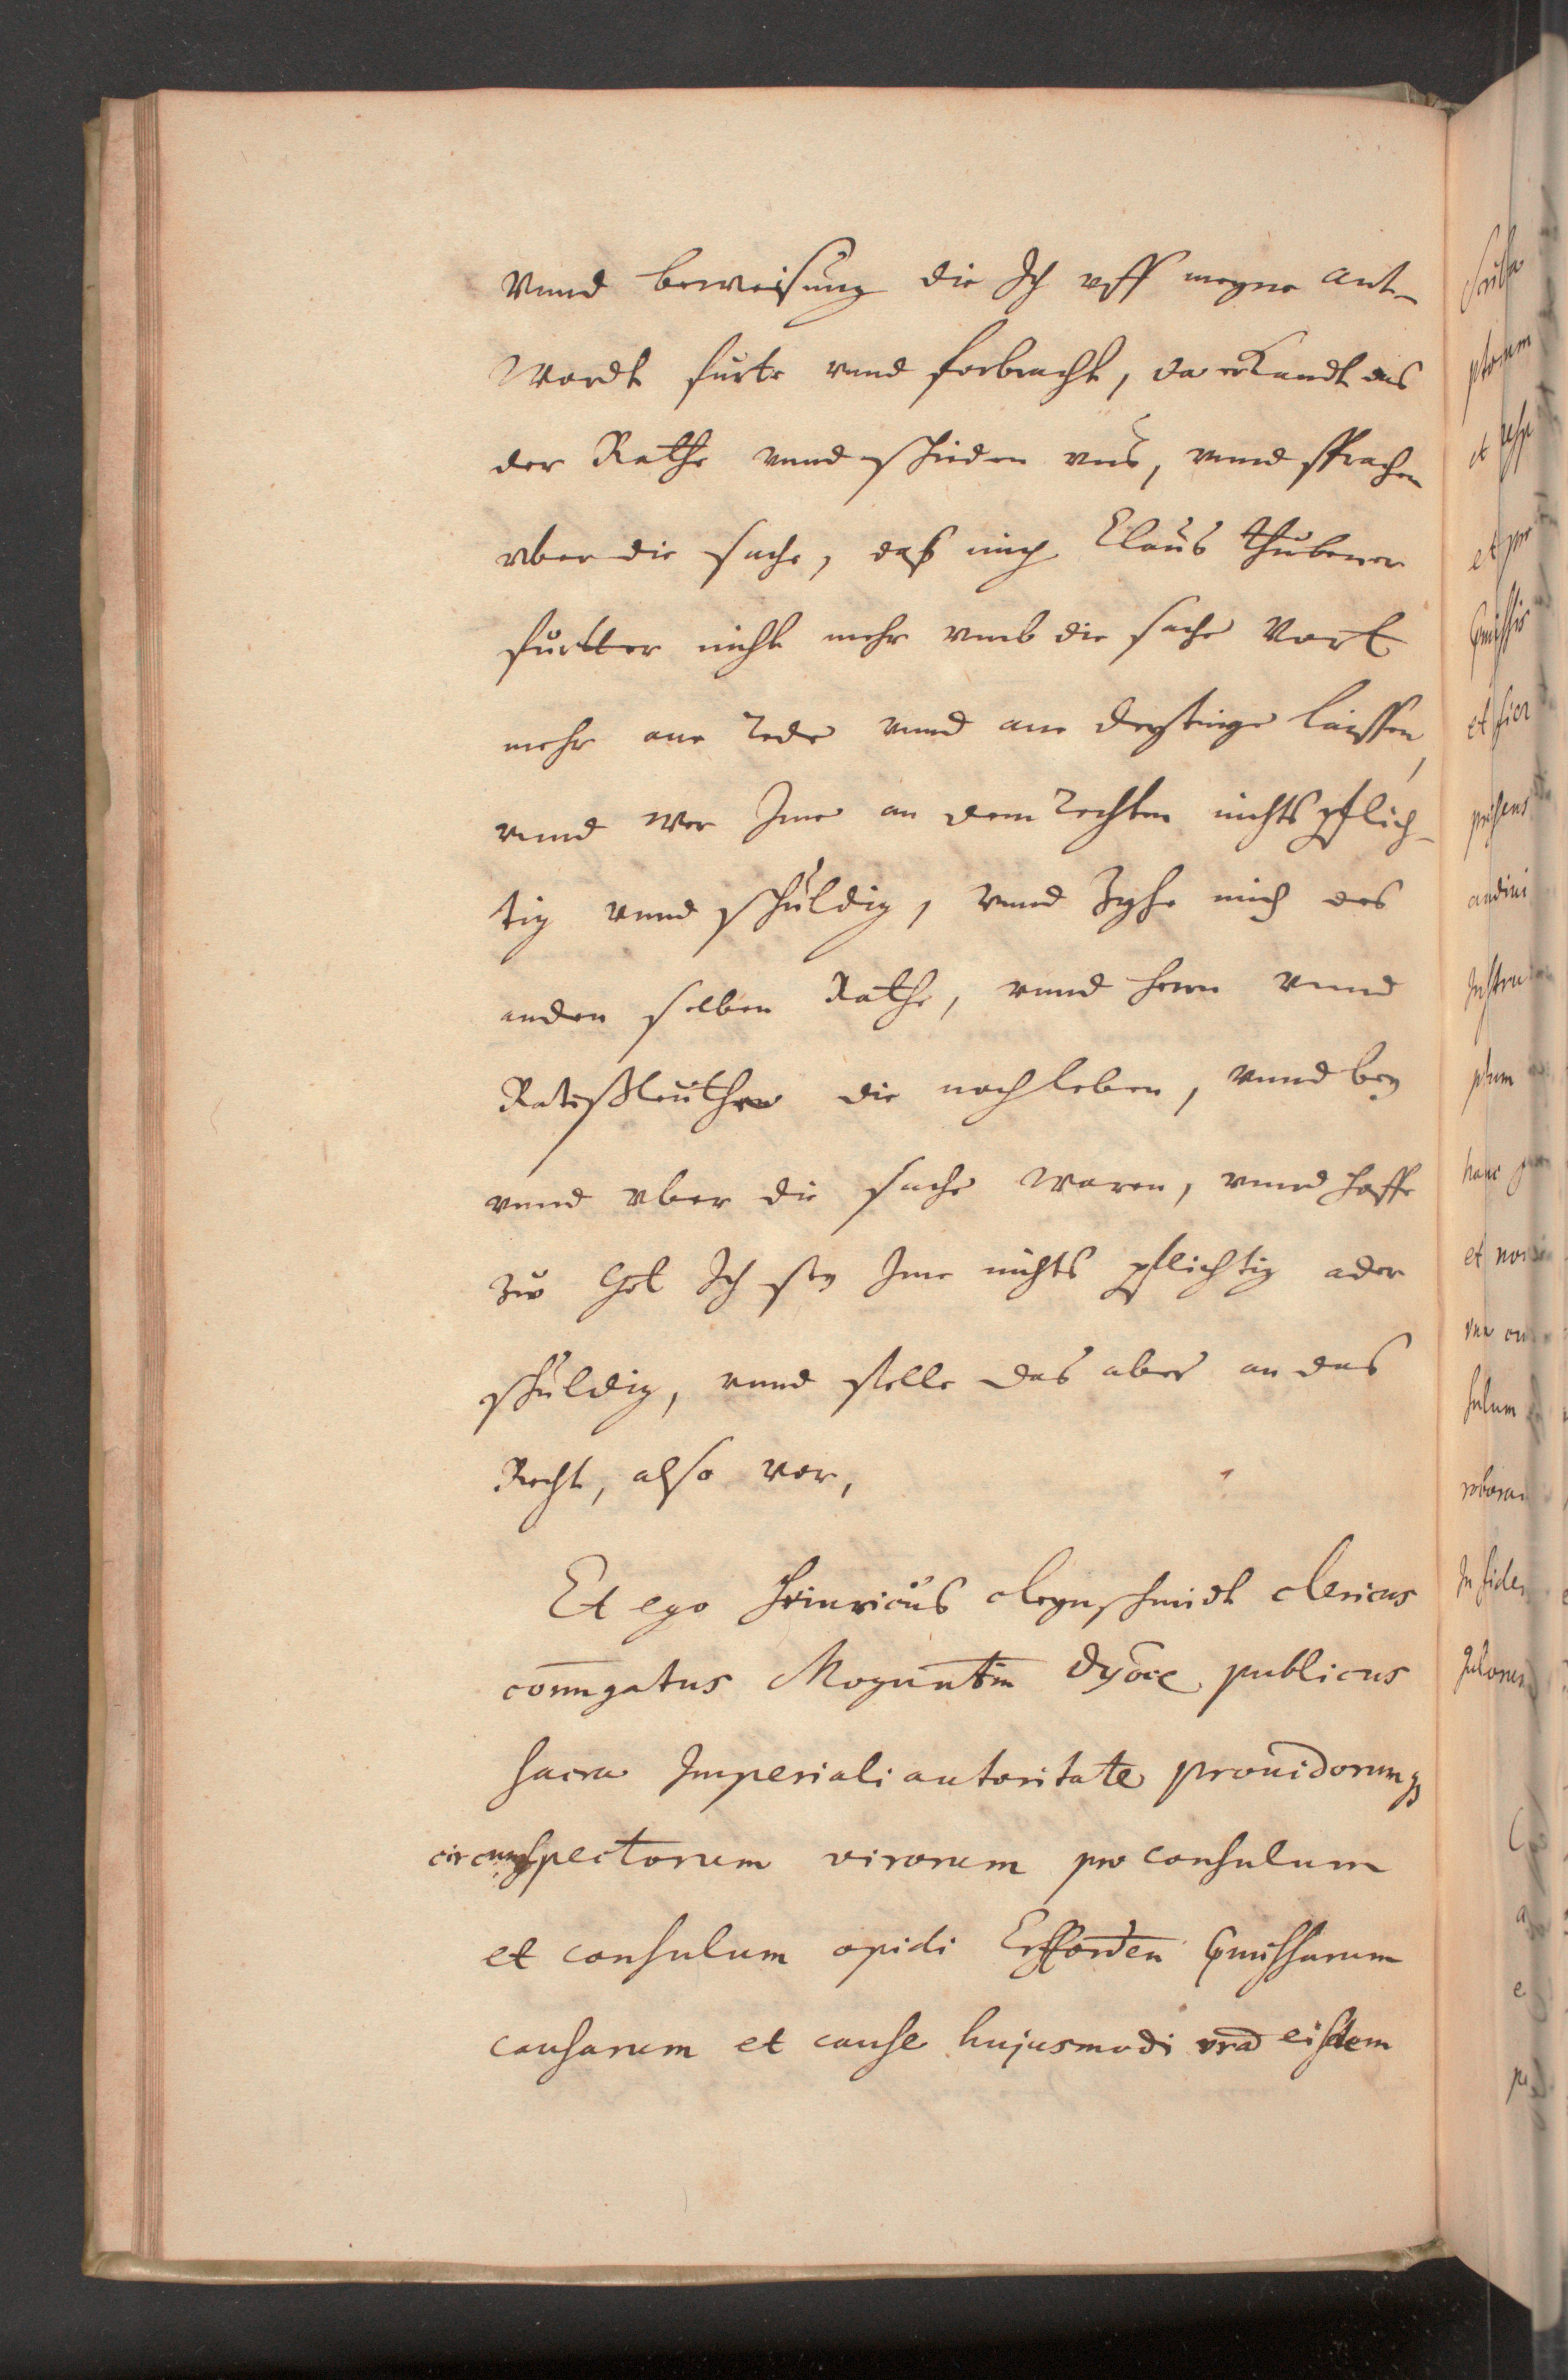 vnnd beweisung die Ich vff meyne ant-
wordt furte vnnd forbracht, da erkandt das
der Rathe vnnd schieden vns, vnnd sprachen
vber die sache, daß mich Claus Thubener
furtter nicht mehr vmb die sache vort
mehr ane rede vnnd ane deystinge laissen,
vnnd wer Ime an dem rechten nichts pflich-
tig vnnd schuldig, vnnd Zyhe mich des
anden selben Rathe, vnnd herrn vnnd
Ratißleuthen die noch leben, vnnd bey
vnnd vber die sache waren, vnnd hoffe
zu Got Ich sey Ime nichts pflichtig ader
schuldig, vnnd stelle das aber an das
Recht, also vor,
Et ego Heinricus cleynschmidt clericus
conjugatus Moguntin dyoc publicus
sacra Imperiali autoritate prouidorumq
circumspectorum virorum pro consulum
et consulum opidi Erfforden
causarum et cause hujusmodi eisdem
et
et
audini
et